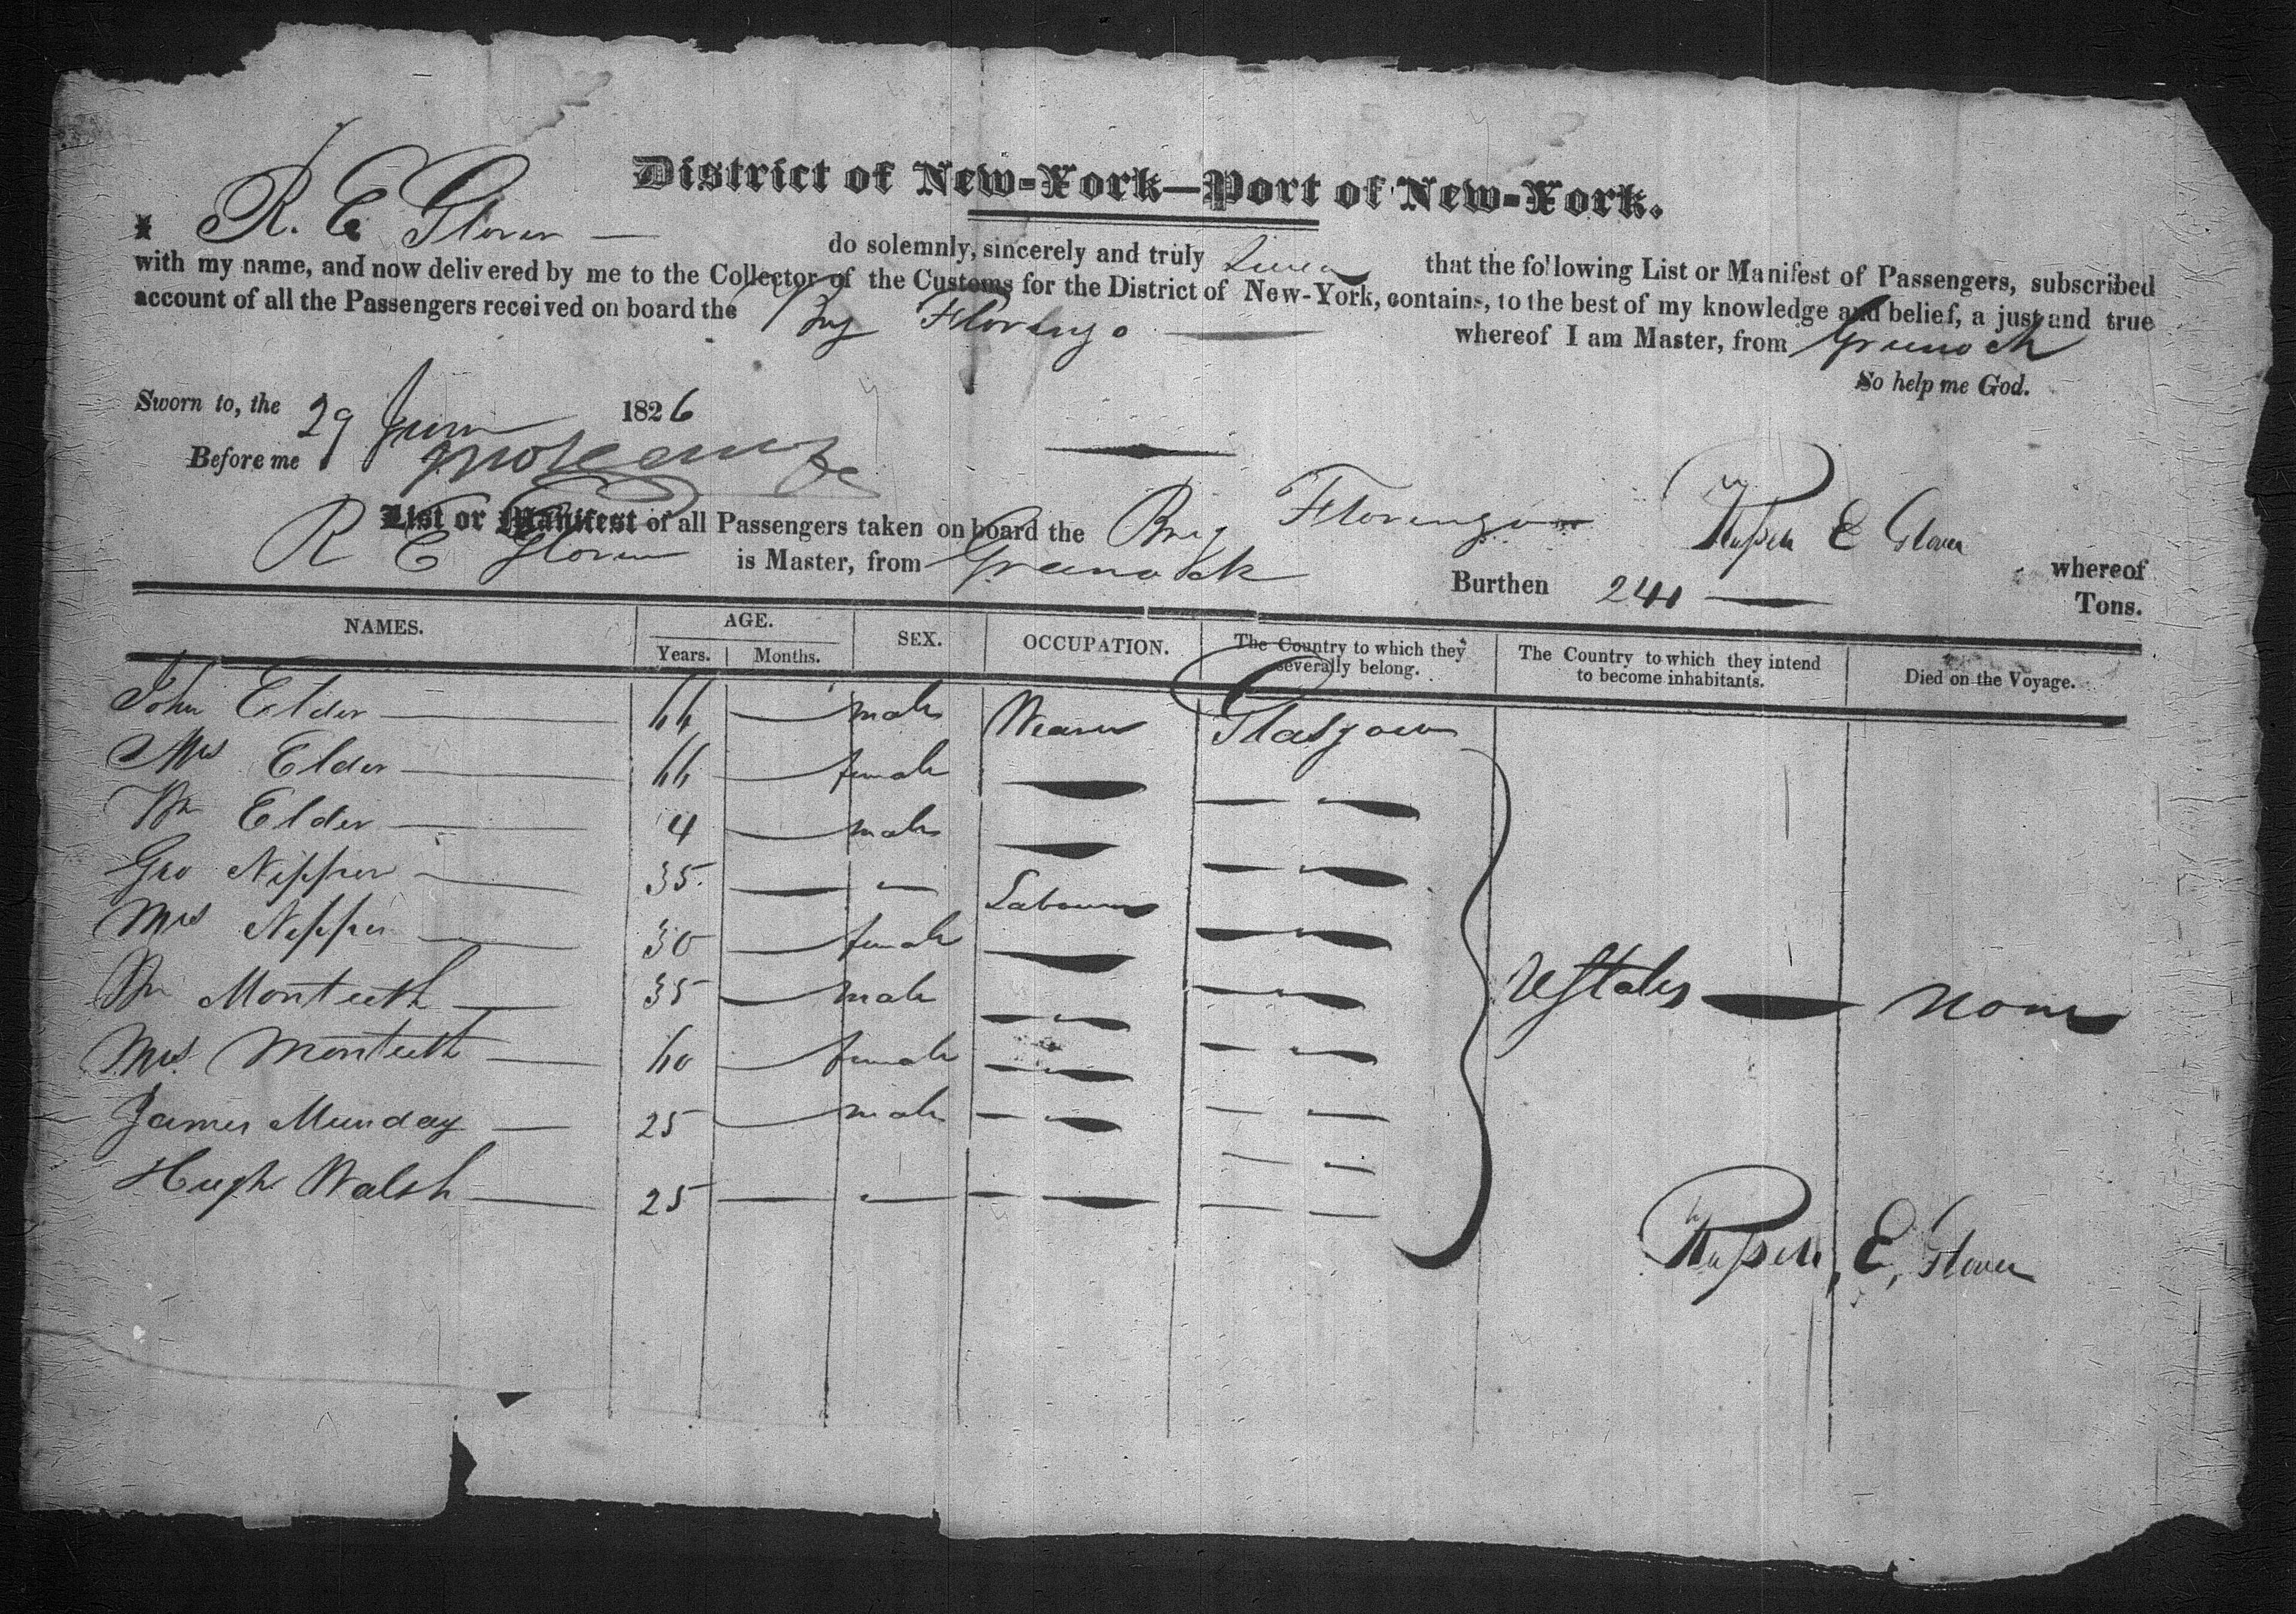 District of New-York—Port of New-York.
I R. E Glover do solemnly, sincerely and truly Swear that the following List or Manifest of Passengers, subscribed
with my name, and now delivered by me to the Collector of the Customs for the District of New-York, contains, to the best of my knowledge and belief, a just and true
account of all the Passengers received on board the Brig Florenzo whereof I am Master, from Greenock
So help me God.
Sworn to, the 29 June 1826
Before me
Russell E Glover
List or Manifest of all Passengers taken on board the Brig Florenzo whereof
R E Glover is Master, from Greenock Burthen 241 Tons.
NAMES. AGE. SEX. OCCUPATION. The Country to which they severally belong. The Country to which they intend to become inhabitants. Died on the Voyage.
Years. Months.
John Elder 44 male Weaver Glasgow
Mrs Elder 44 female
Wm Elder 4 male
Geo Nipper 35 Labourer
Mrs Nipper 30 female
Wm Monteeth 35 male
Mrs Monteeth 40 female
James Munday 25 male
Hugh Walsh 25
UStates none
Russell, E, Glover